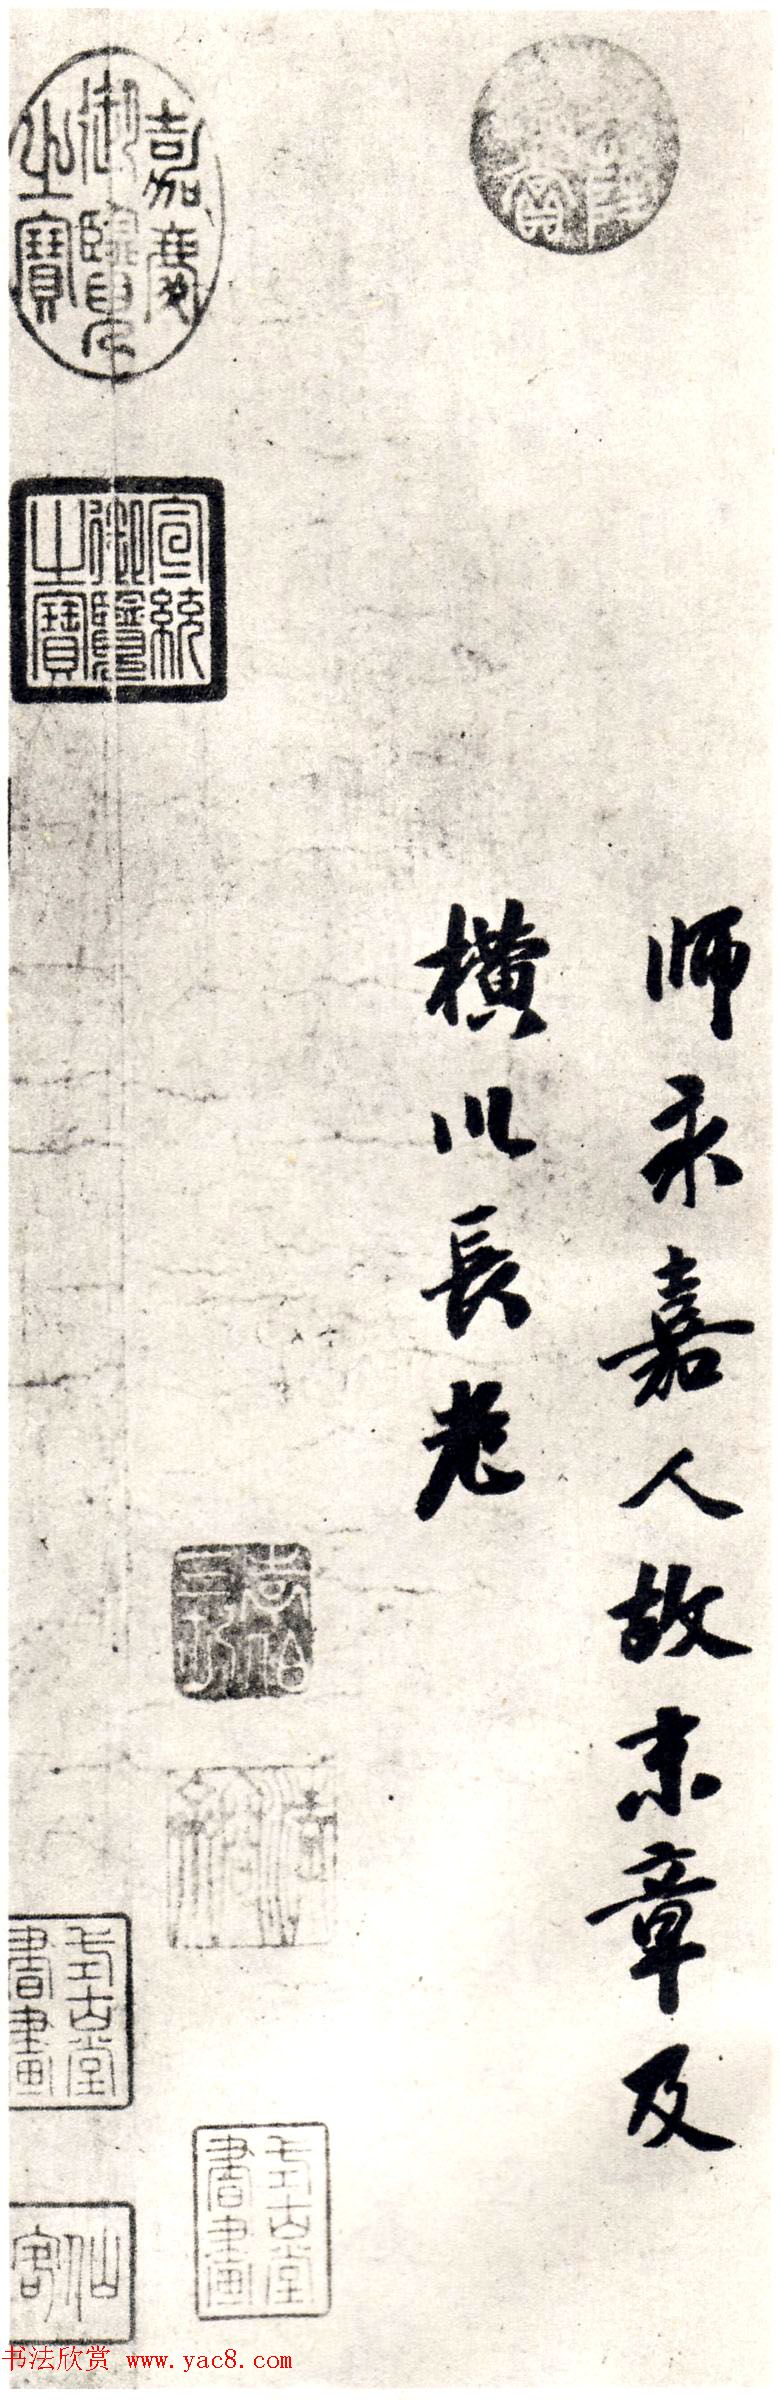 師永嘉人故末章及
橫以長老
嘉慶御覽之寶
宣統御覽之寶
式古堂書畫
式古堂書畫
仙客
书法欣赏 www.yac8.com